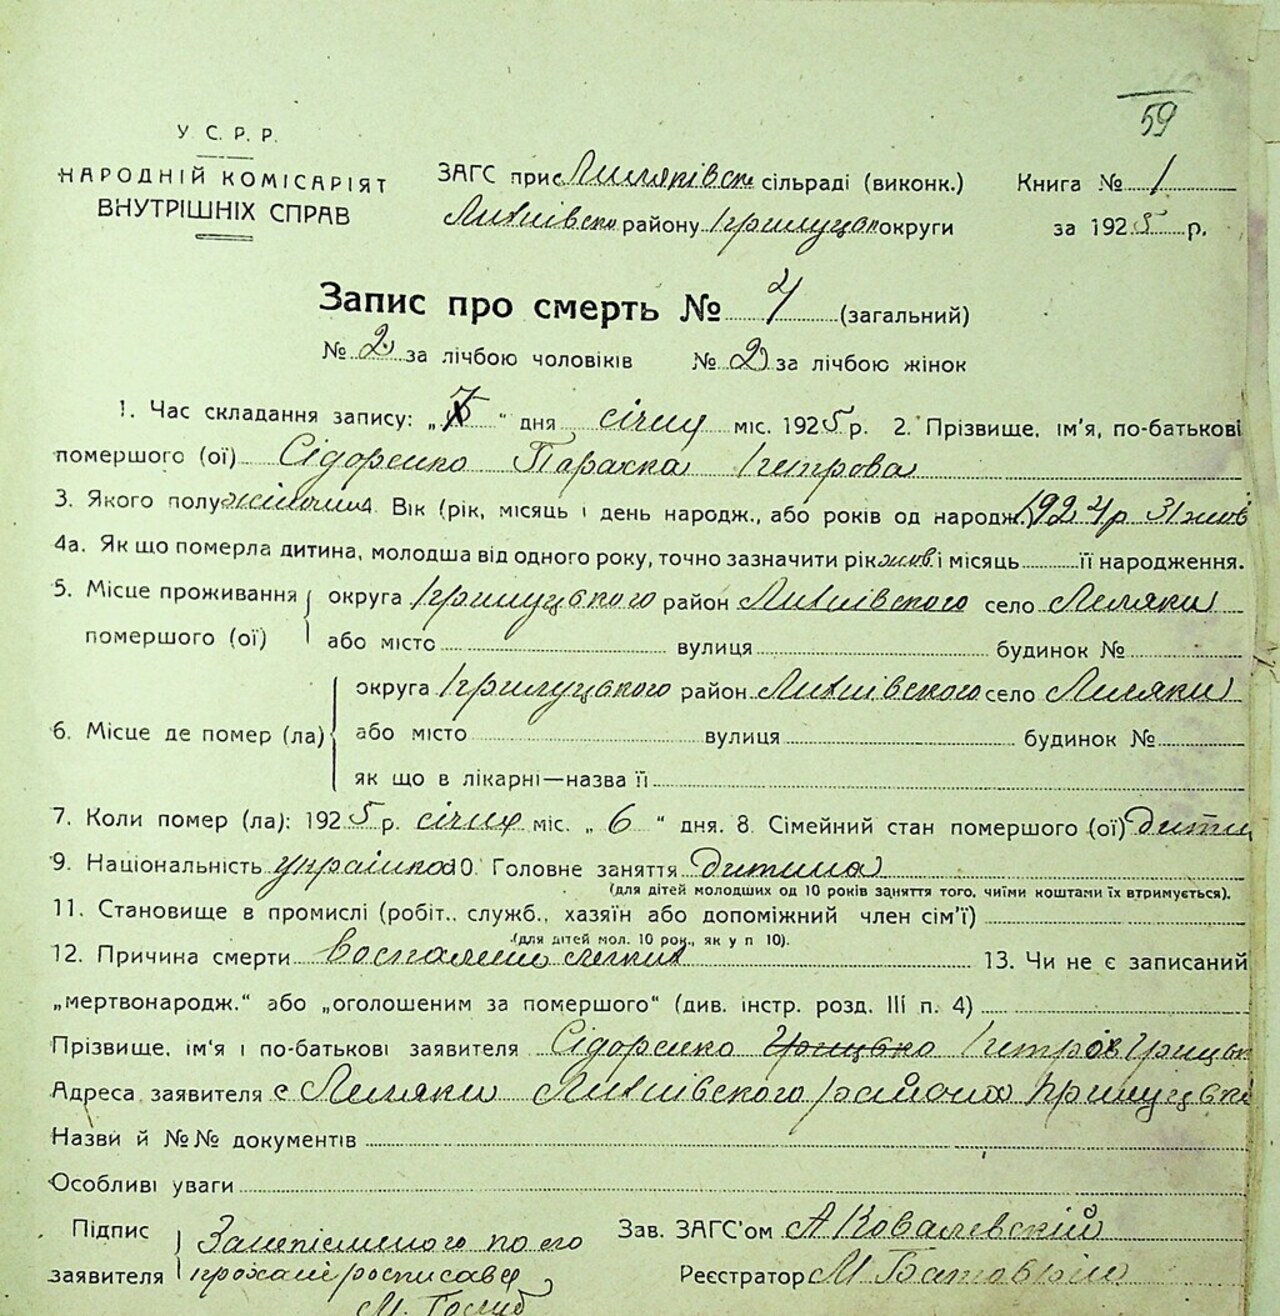 59
У С. Р. Р.
НАРОДНІЙ КОМІСАРІЯТ
ВНУТРІШНІХ СПРАВ
ЗАГС при Лиляківськ сільраді (виконк.)
району Прилуцьк округи
Книга № 1
за 1925 р.
Запис про смерть № 4 (загальний)
№ 2 за лічбою чоловіків № 2 за лічбою жінок
1. Час складання запису: „7" дня січня міс. 1925 р. 2. Прізвище, ім'я, по-батькові
помершого (ої) Сідоренко Параска Петрова
3. Якого полу жіночия 4. Вік (рік, місяць і день народж., або років од народж.) 1924 р 31 жов
4а. Як що померла дитина, молодша від одного року, точно зазначити рік жов. і місяць її народження.
5. Місце проживання помершого (ої) округа Прилуцького район село Лиляки
або місто вулиця будинок №
6. Місце де помер (ла) округа Прилуцького район село Лиляки
або місто вулиця будинок №
як що в лікарні—назва її
7. Коли помер (ла): 1925 р. січня міс. „6" дня. 8. Сімейний стан помершого (ої) дити
9. Національність українка 10. Головне заняття дитина
(для дітей молодших од 10 років заняття того, чиїми коштами їх втримується).
11. Становище в промислі (робіт., служб., хазяїн або допоміжний член сім'ї)
(для дітей мол. 10 рок., як у п 10).
12. Причина смерти Воспаление легких 13. Чи не є записаний
„мертвонародж." або „оголошеним за помершого" (див. інстр. розд. III п. 4)
Прізвище, ім'я і по-батькові заявителя Сідоренко Грицько Петро Грицьк
Адреса заявителя с Лиляки района Прилуцьк
Назви й №№ документів
Особливі уваги
Підпис заявителя
За неписьменого по его
прозьбі росписався
М. Голуб
Зав. ЗАГС'ом А Ковалевскій
Реєстратор М.